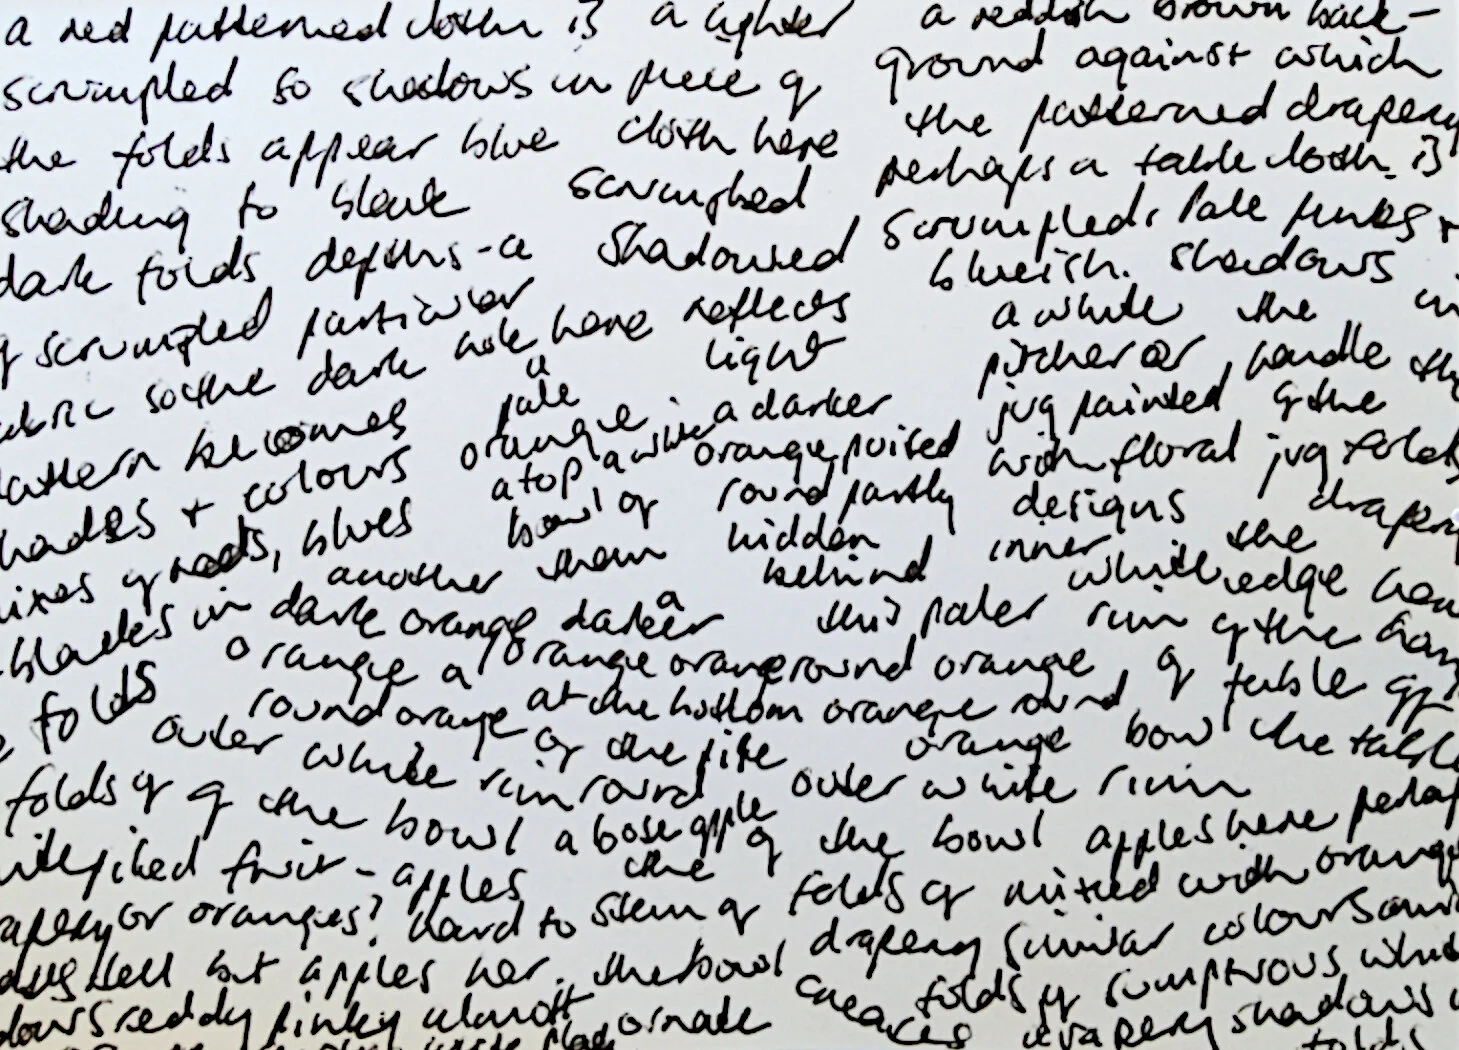 a red patterned cloth is a lighter a reddish brown back-
scrumpled so shadows in piece of ground against which
the folds appear blue cloth here the patterned drapery
shading to black scrumpled perhaps a table cloth. is
dark folds depths - a shadowed scrumpled, Pale pinks +
of scrumpled particular here reflects blueish. shadows
so the dark hole a light a white the in
pattern becomes pale a darker pitcher or handle the
shades + colours orange orange poised jug painted of the
mixes of reds, blues atop a white round partly with floral jug folds
blacks in another bowl of them hidden behind designs drapery
folds dark orange a darker this paler inner white the edge
orange a orange orange round orange rim of the
outer round orange at the bottom orange round of table
folds of white rim round of the pile orange bowl the table
of the bowl a base apple outer white rim
piled fruit - apples the of the bowl apples here perhaps
or oranges? hard to stem of folds of mixed with orange
tell but apples the bowl drapery similar colours
reddy pinky almost ornate creases folds of sumptuous white
drapery shadows
folds